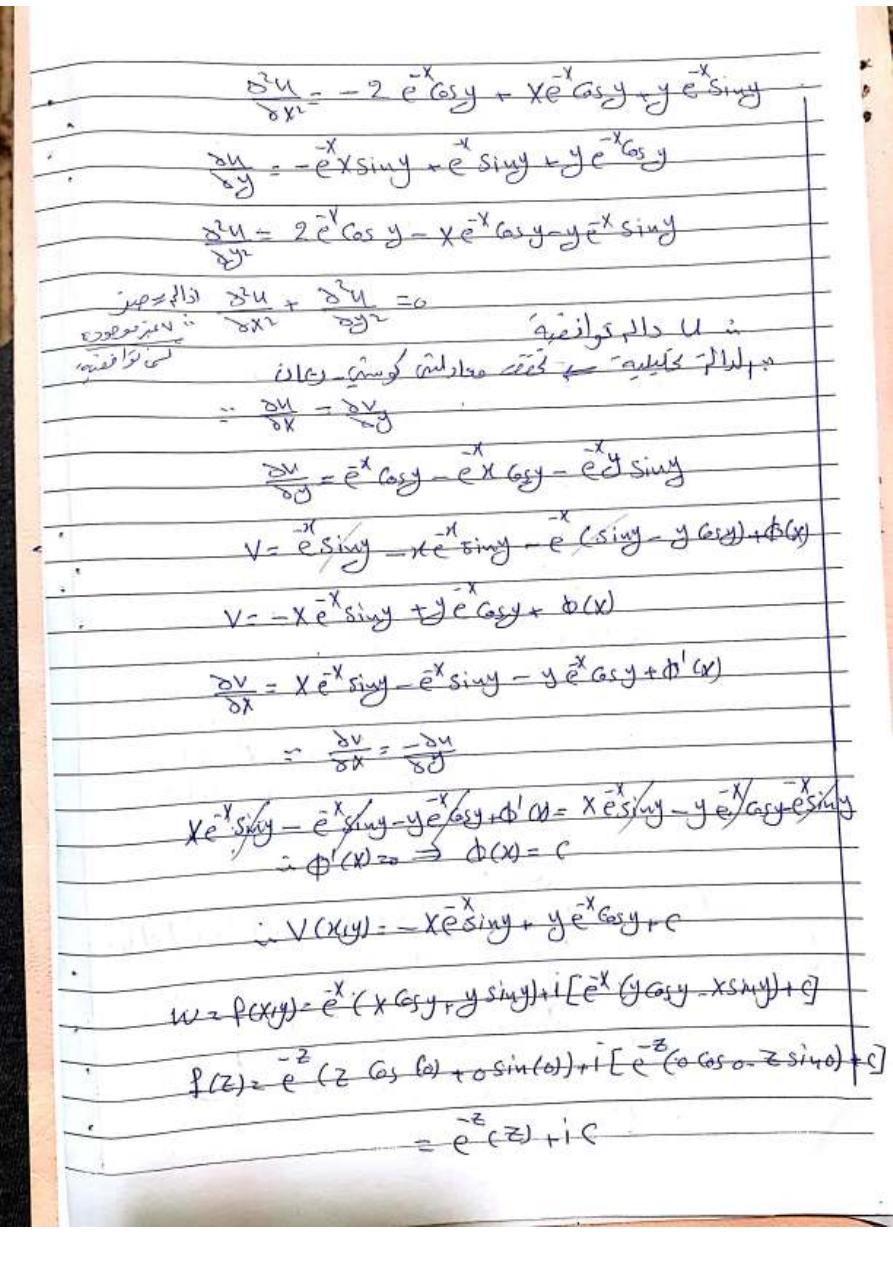 ∂²u/∂x² = -2 e^-x Cosy + xe^-x Cosy + y e^-x Siny
∂u/∂y = -e^-x x siny + e^-x siny + y e^-x Cosy
∂²u/∂y² = 2e^-x Cos y - xe^-x Cosy - ye^-x siny
∂²u/∂x² + ∂²u/∂y² = 0
∴ u دالة توافقية
∵ الدالة تحليلية ← تحقق معادلتي كوشي ريمان
∵ ∂u/∂x = ∂v/∂y
∂u/∂y = e^-x Cosy - e^-x x Cosy - e^-x y siny
V = e^-x siny - xe^-x siny - e^-x (siny - y Cosy) + ϕ(x)
V = -xe^-x siny + ye^-x Cosy + ϕ(x)
∂v/∂x = xe^-x siny - e^-x siny - y e^-x Cosy + ϕ'(x)
∵ ∂v/∂x = -∂u/∂y
xe^-x siny - e^-x siny - ye^-x Cosy + ϕ'(x) = xe^-x siny - ye^-x Cosy - e^-x siny
∴ ϕ'(x) = 0 ⇒ ϕ(x) = c
∴ V(x,y) = -xe^-x siny + ye^-x Cosy + c
w = f(x,y) = e^-x (x Cosy + y siny) + i [e^-x (y Cosy - x siny) + c]
f(z) = e^-z (z Cos(0) + 0 sin(0)) + i [e^-z (0 Cos 0 - z sin 0) + c]
= e^-z (z) + i c